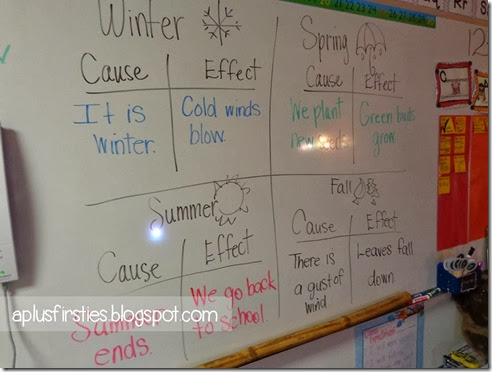 Winter
Cause Effect
It is
winter.
Cold winds
blow.
Spring
Cause Effect
We plant
new seeds
Green buds
grow.
Summer
Cause Effect
Summer
ends.
We go back
to school.
Fall
Cause Effect
There is
a gust of
wind
Leaves fall
down
aplusfirsties.blogspot.com